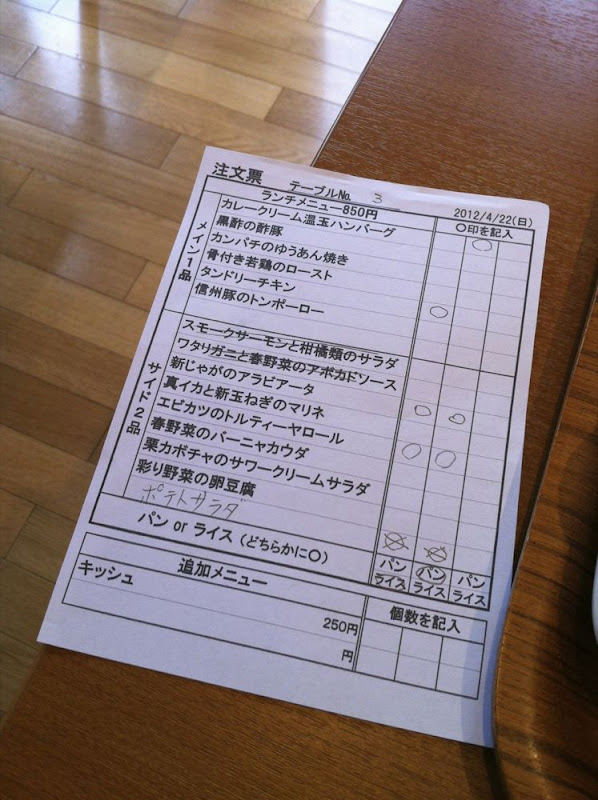 注文票 テーブルNo. 3 2012/4/22(日)
ランチメニュー850円 〇印を記入
メイン1品
カレークリーム温玉ハンバーグ
黒酢の酢豚
カンパチのゆうあん焼き
骨付き若鶏のロースト
タンドリーチキン
信州豚のトンポーロー
サイド2品
スモークサーモンと柑橘類のサラダ
ワタリガニと春野菜のアボカドソース
新じゃがのアラビアータ
真イカと新玉ねぎのマリネ
エビカツのトルティーヤロール
春野菜のバーニャカウダ
栗カボチャのサワークリームサラダ
彩り野菜の卵豆腐
ポテトサラダ
パン or ライス (どちらかに〇) パン パン パン
ライス ライス ライス
追加メニュー 個数を記入
キッシュ
250円
円